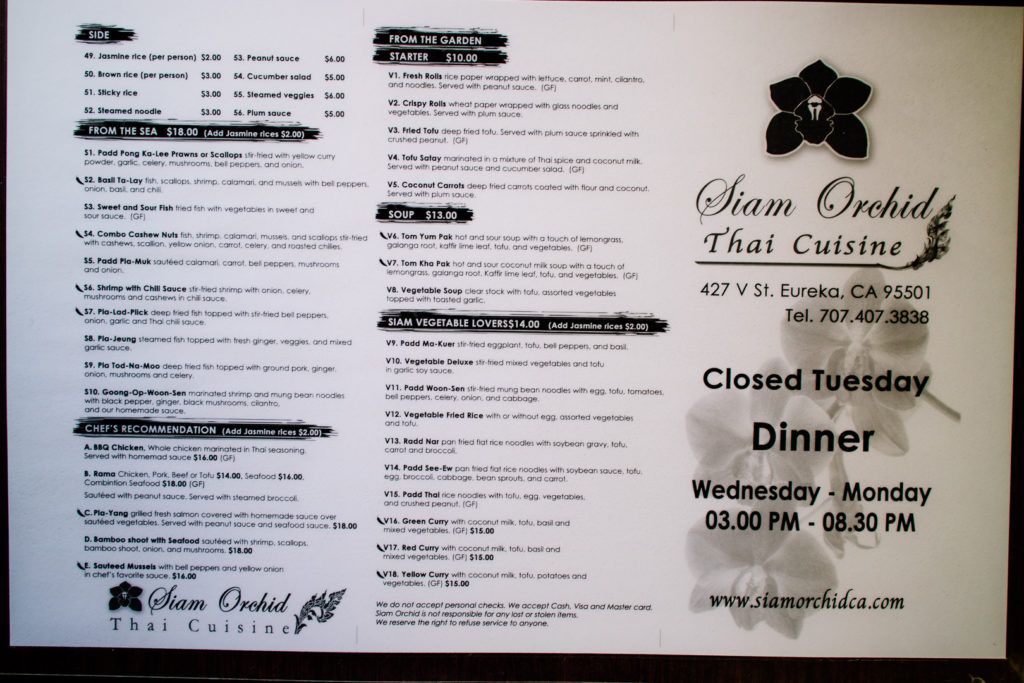 SIDE
49. Jasmine rice (per person) $2.00 53. Peanut sauce $6.00
50. Brown rice (per person) $3.00 54. Cucumber salad $5.00
51. Sticky rice $3.00 55. Steamed veggies $6.00
52. Steamed noodle $3.00 56. Plum sauce $5.00
FROM THE SEA $18.00 (Add Jasmine rices $2.00)
S1. Padd Pong Ka-Lee Prawns or Scallops stir-fried with yellow curry
powder, garlic, celery, mushrooms, bell peppers, and onion.
S2. Basil Ta-Lay fish, scallops, shrimp, calamari, and mussels with bell peppers,
onion, basil, and chili.
S3. Sweet and Sour Fish fried fish with vegetables in sweet and
sour sauce. (GF)
S4. Combo Cashew Nuts fish, shrimp, calamari, mussels, and scallops stir-fried
with cashews, scallion, yellow onion, carrot, celery, and roasted chilies.
S5. Padd Pla-Muk sautéed calamari, carrot, bell peppers, mushrooms
and onion.
S6. Shrimp with Chili Sauce stir-fried shrimp with onion, celery,
mushrooms and cashews in chili sauce.
S7. Pla-Lad-Plick deep fried fish topped with stir-fried bell peppers,
onion, garlic and Thai chili sauce.
S8. Pla-Jeung steamed fish topped with fresh ginger, veggies, and mixed
garlic sauce.
S9. Pla Tod-Na-Moo deep fried fish topped with ground pork, ginger,
onion, mushrooms and celery.
S10. Goong-Op-Woon-Sen marinated shrimp and mung bean noodles
with black pepper, ginger, black mushrooms, cilantro,
and our homemade sauce.
CHEF'S RECOMMENDATION (Add Jasmine rices $2.00)
A. BBQ Chicken, Whole chicken marinated in Thai seasoning.
Served with homemad sauce $16.00 (GF)
B. Rama Chicken, Pork, Beef or Tofu $14.00, Seafood $16.00,
Combintion Seafood $18.00 (GF)
Sautéed with peanut sauce. Served with steamed broccoli.
C. Pla-Yang grilled fresh salmon covered with homemade sauce over
sautéed vegetables. Served with peanut sauce and seafood sauce. $18.00
D. Bamboo shoot with Seafood sautéed with shrimp, scallops,
bamboo shoot, onion, and mushrooms. $18.00
E. Sauteed Mussels with bell peppers and yellow onion
in chef's favorite sauce. $16.00
Siam Orchid
Thai Cuisine
FROM THE GARDEN
STARTER $10.00
V1. Fresh Rolls rice paper wrapped with lettuce, carrot, mint, cilantro,
and noodles. Served with peanut sauce. (GF)
V2. Crispy Rolls wheat paper wrapped with glass noodles and
vegetables. Served with plum sauce.
V3. Fried Tofu deep fried tofu. Served with plum sauce sprinkled with
crushed peanut. (GF)
V4. Tofu Satay marinated in a mixture of Thai spice and coconut milk.
Served with peanut sauce and cucumber salad. (GF)
V5. Coconut Carrots deep fried carrots coated with flour and coconut.
Served with plum sauce.
SOUP $13.00
V6. Tom Yum Pak hot and sour soup with a touch of lemongrass,
galanga root, kaffir lime leaf, tofu, and vegetables. (GF)
V7. Tom Kha Pak hot and sour coconut milk soup with a touch of
lemongrass, galanga root, Kaffir lime leaf, tofu, and vegetables. (GF)
V8. Vegetable Soup clear stock with tofu, assorted vegetables
topped with toasted garlic.
SIAM VEGETABLE LOVERS$14.00 (Add Jasmine rices $2.00)
V9. Padd Ma-Kuer stir-fried eggplant, tofu, bell peppers, and basil.
V10. Vegetable Deluxe stir-fried mixed vegetables and tofu
in garlic soy sauce.
V11. Padd Woon-Sen stir-fried mung bean noodles with egg, tofu, tomatoes,
bell peppers, celery, onion, and cabbage.
V12. Vegetable Fried Rice with or without egg, assorted vegetables
and tofu.
V13. Radd Nar pan fried flat rice noodles with soybean gravy, tofu,
carrot and broccoli.
V14. Padd See-Ew pan fried flat rice noodles with soybean sauce, tofu,
egg, broccoli, cabbage, bean sprouts, and carrot.
V15. Padd Thai rice noodles with tofu, egg, vegetables,
and crushed peanut. (GF)
V16. Green Curry with coconut milk, tofu, basil and
mixed vegetables. (GF) $15.00
V17. Red Curry with coconut milk, tofu, basil and
mixed vegetables. (GF) $15.00
V18. Yellow Curry with coconut milk, tofu, potatoes and
vegetables. (GF) $15.00
We do not accept personal checks. We accept Cash, Visa and Master card.
Siam Orchid is not responsible for any lost or stolen items.
We reserve the right to refuse service to anyone.
Siam Orchid
Thai Cuisine
427 V St. Eureka, CA 95501
Tel. 707.407.3838
Closed Tuesday
Dinner
Wednesday - Monday
03.00 PM - 08.30 PM
www.siamorchidca.com